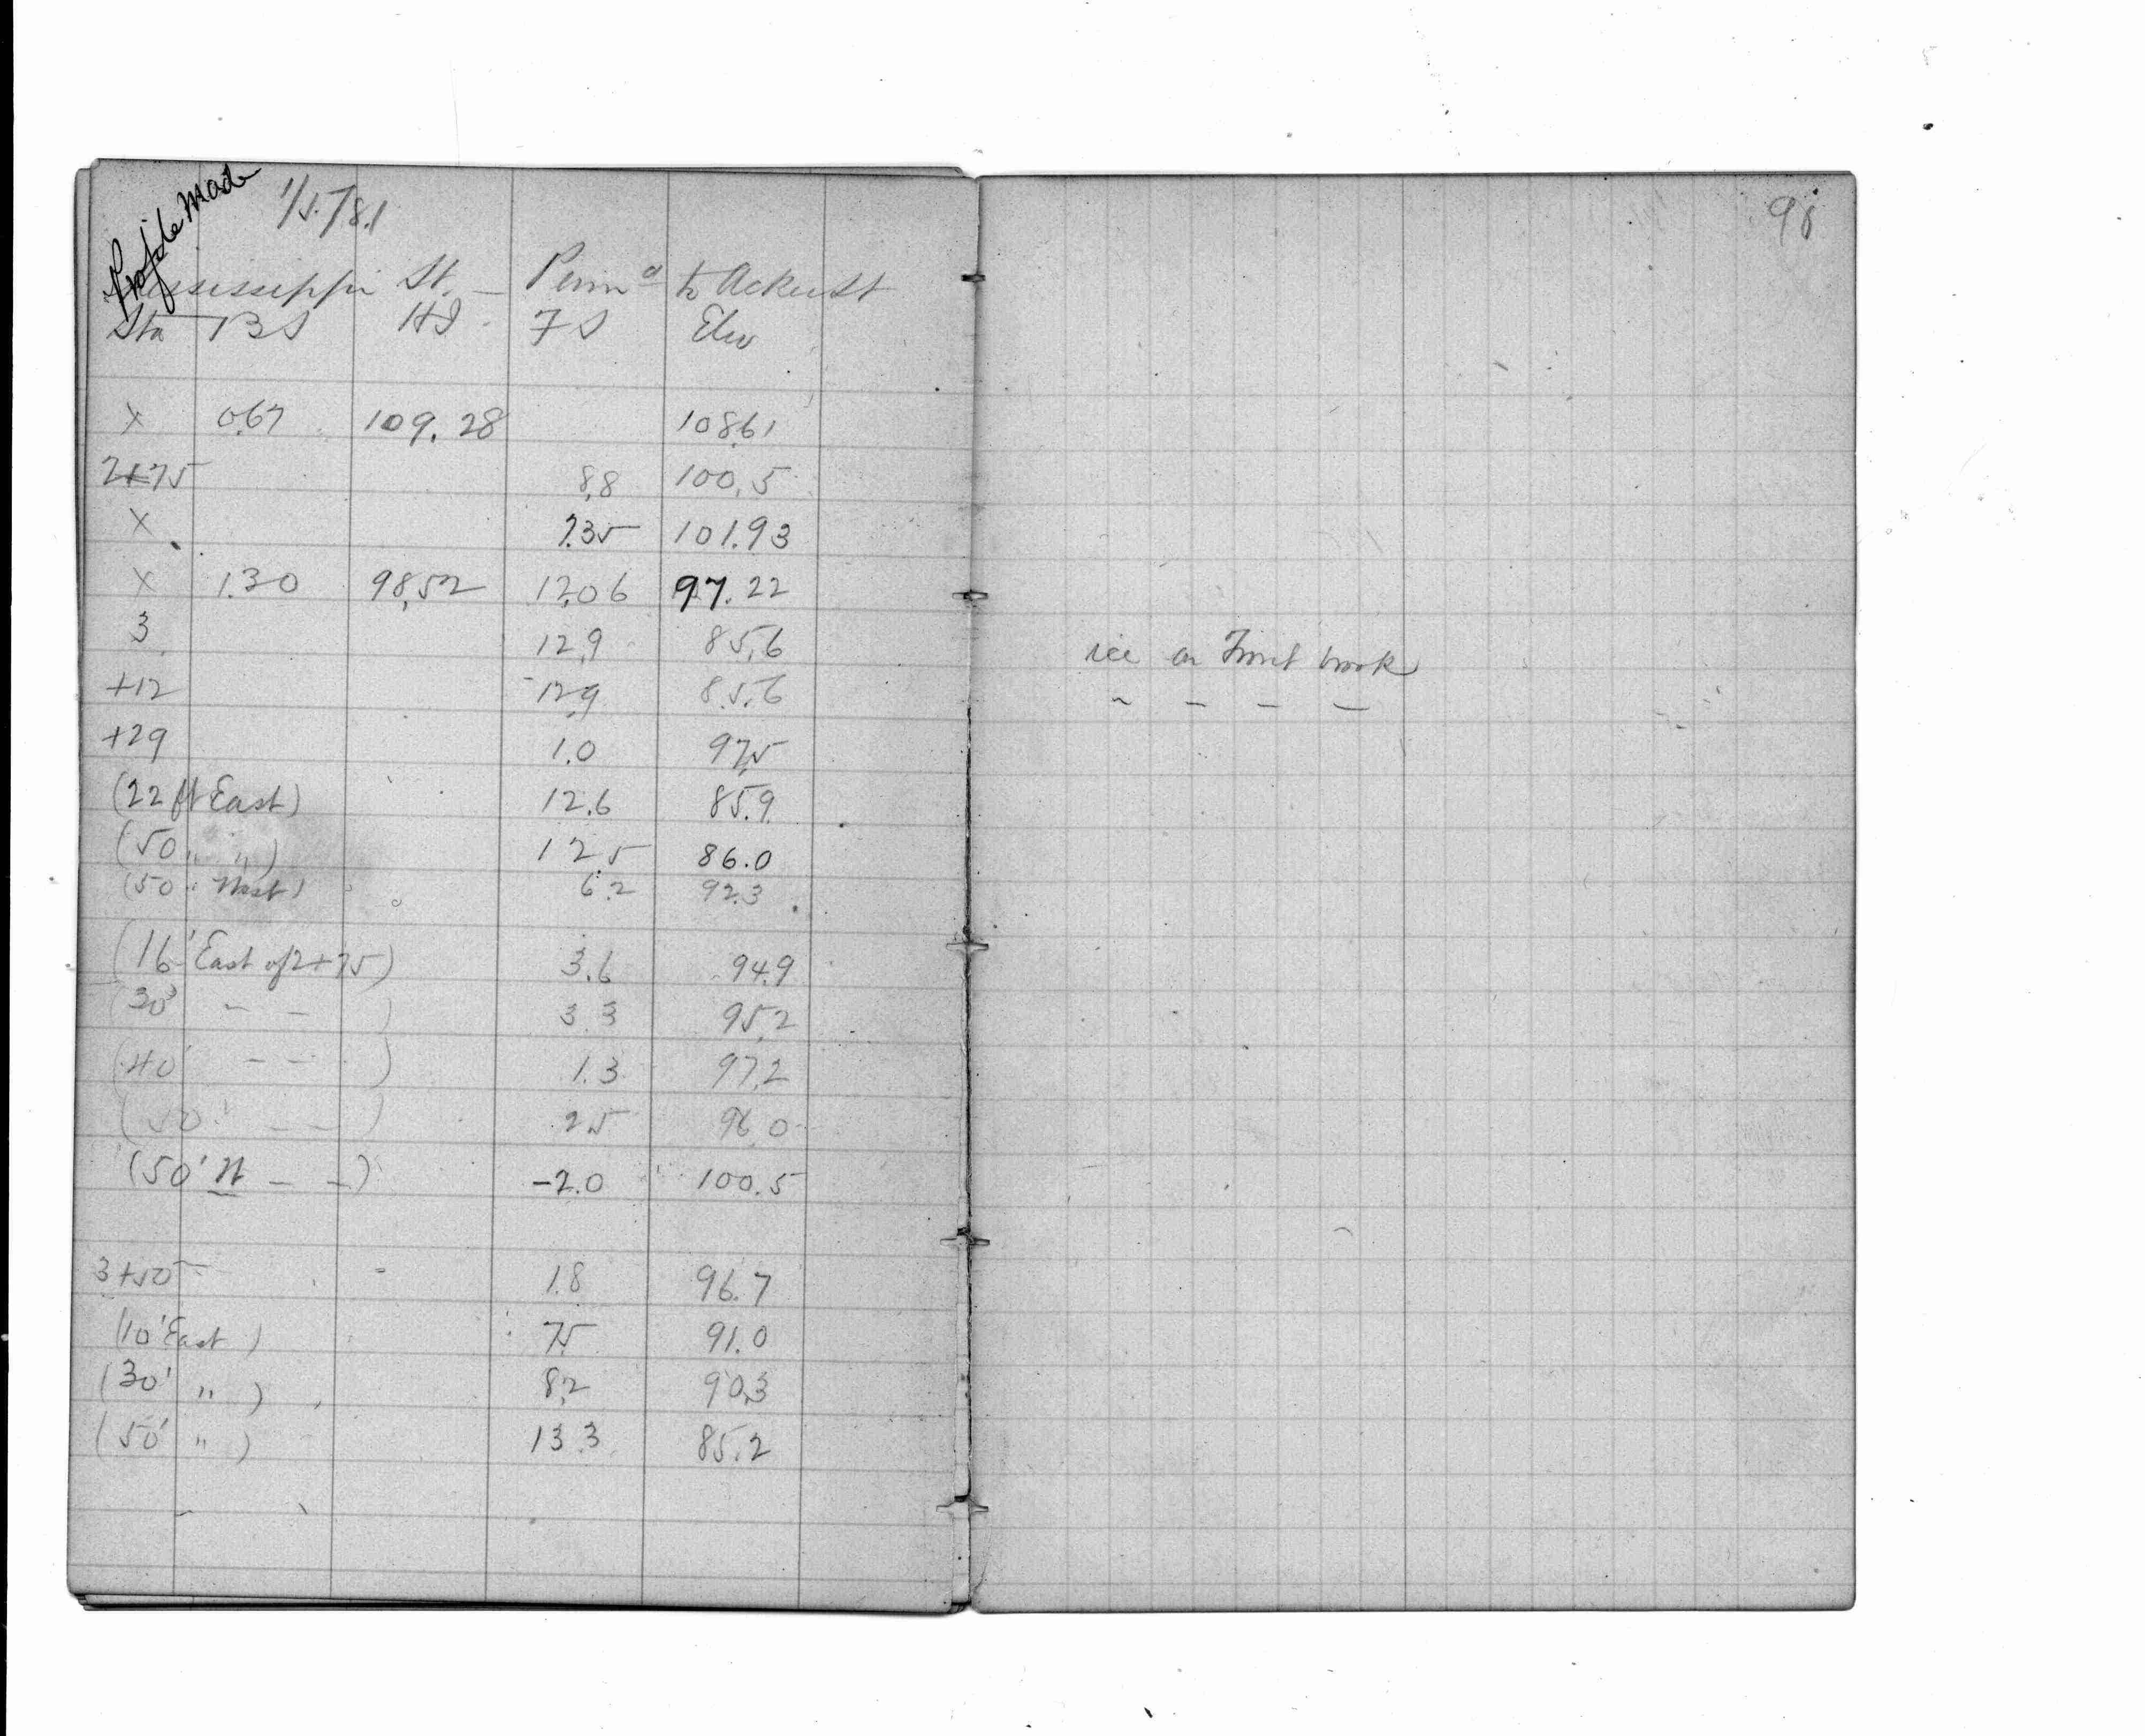 Profile Made
Mississippi St. – Penn a to Acker St
Sta BS HI FS Elev
X 0.67 109.28 108.61
2+75 8.8 100.5
X 7.35 101.93
X 1.30 98.52 12.06 97.22
3 12.9 85.6
+12 12.9 85.6
+29 1.0 97.5
(22 ft East) 12.6 85.9
(50 " ") 12.5 86.0
(50 " West) 6.2 92.3
(16' East of 2+75) 3.6 94.9
(30' – – ) 3.3 95.2
(40' – – ) 1.3 97.2
(50' – – ) 2.5 96.0
(50' W – –) -2.0 100.5
3+50 1.8 96.7
(10' East ) 7.5 91.0
(30' " ) 8.2 90.3
(50' " ) 13.3 85.2
98
ice on Trout brook
" – – –